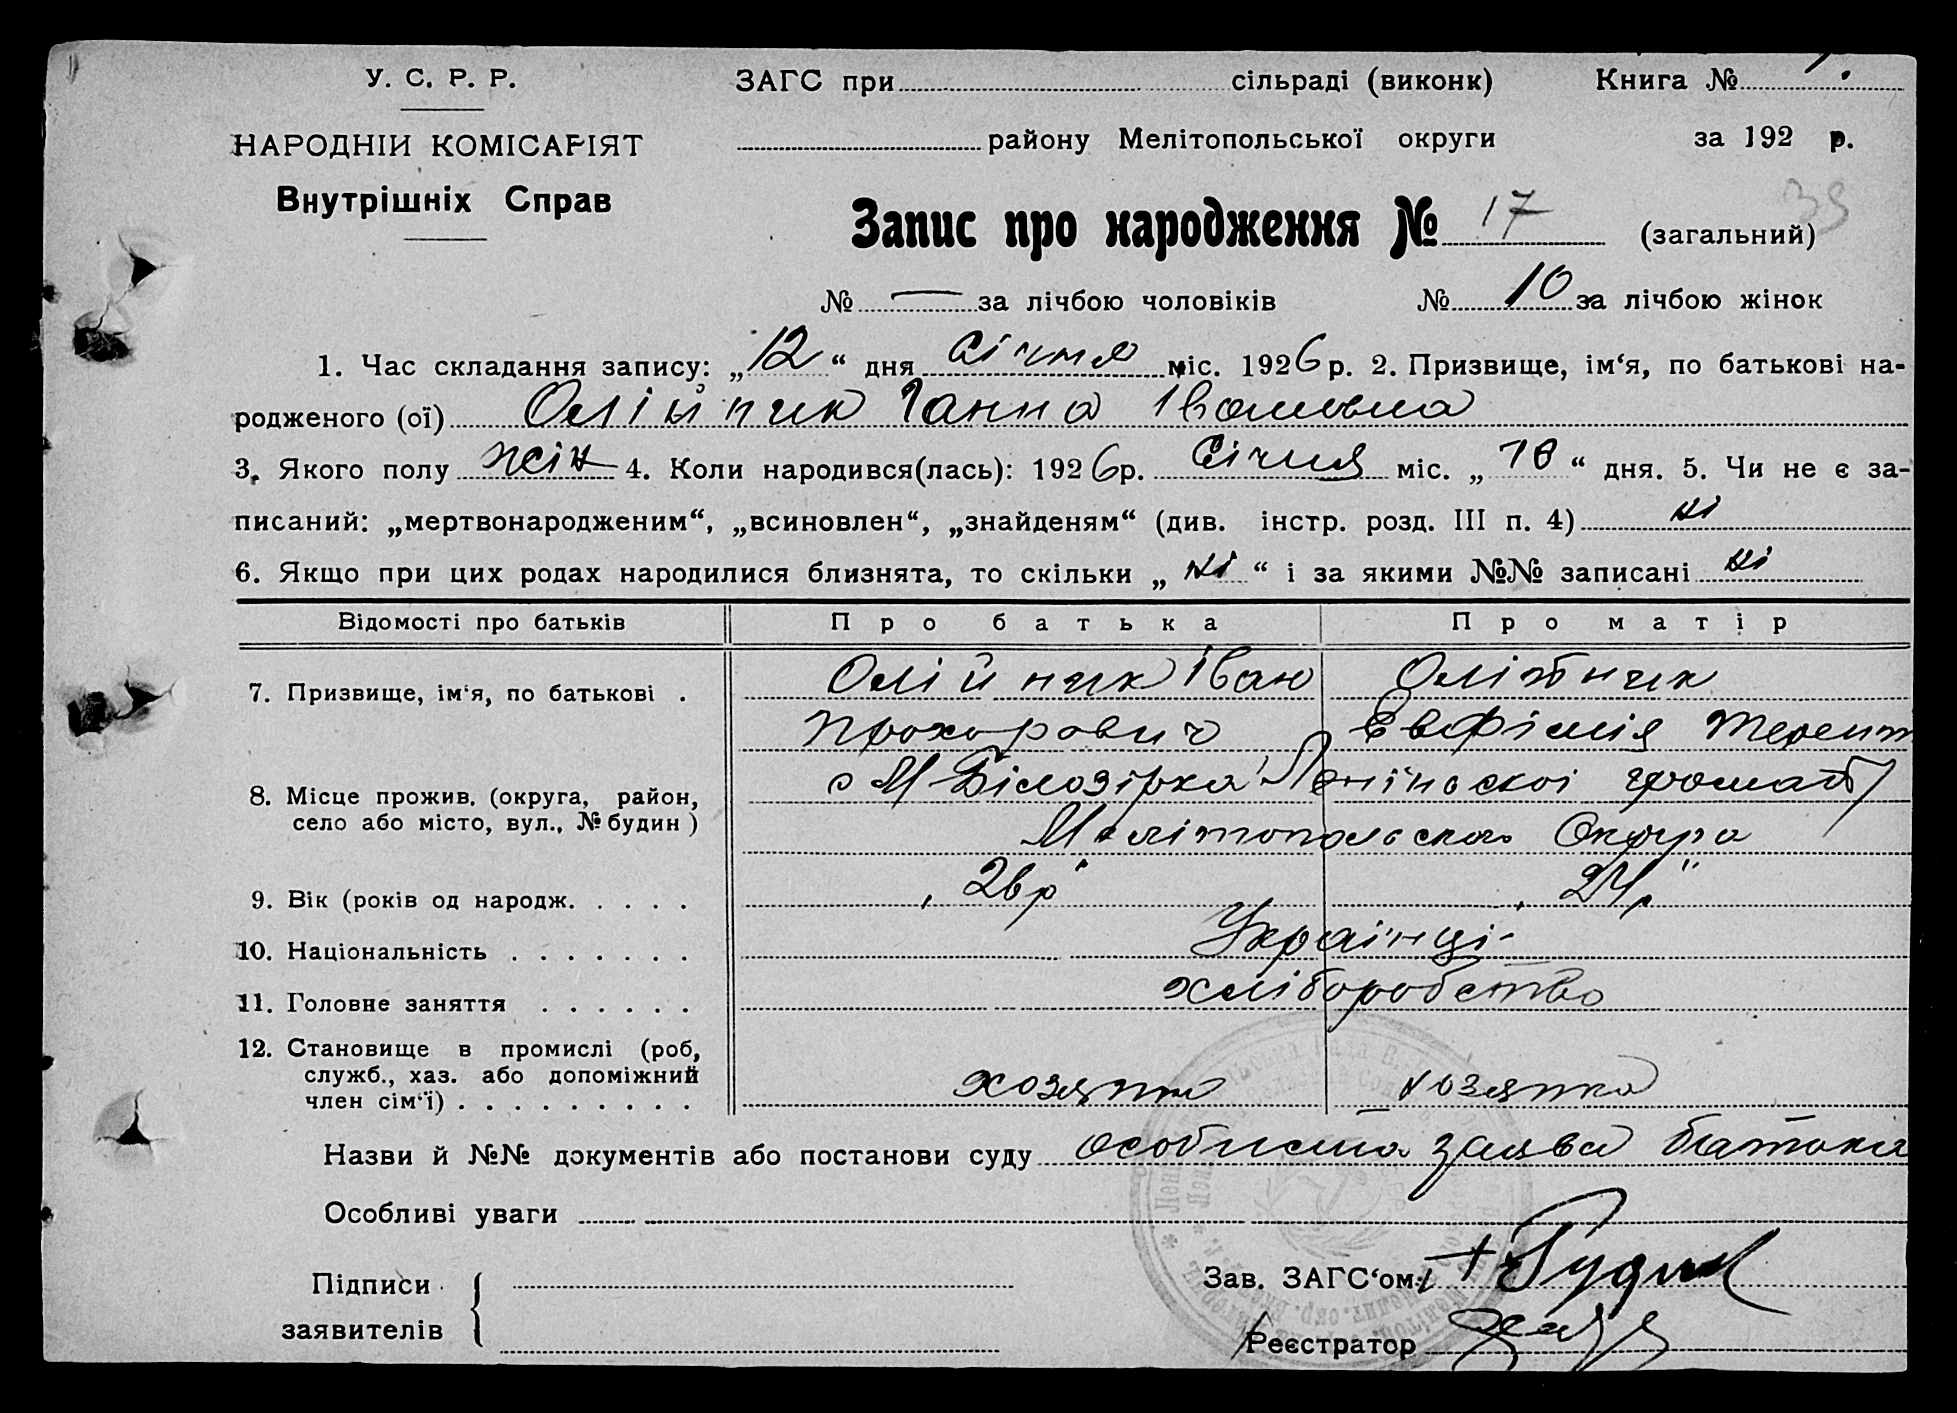 У. С. Р. Р.
ЗАГС при сільраді (виконк) Книга № 1.
НАРОДНІЙ КОМІСАРІЯТ
району Мелітопольської округи за 192 р.
Внутрішніх Справ
Запис про народження № 17 (загальний)
39
№ — за лічбою чоловіків № 10 за лічбою жінок
1. Час складання запису: „12“ дня Січня міс. 1926 р. 2. Призвище, ім‘я, по батькові на-
родженого (ої) Олійник Ганна Івановна
3. Якого полу жін 4. Коли народився(лась): 1926 р. Січня міс. „10“ дня. 5. Чи не є за-
писаний: „мертвонародженим“, „всиновлен“, „знайденям“ (див. інстр. розд. III п. 4) ні
6. Якщо при цих родах народилися близнята, то скільки „ні“ і за якими №№ записані ні
Відомості про батьків Про батька Про матір
7. Призвище, ім‘я, по батькові . Олійник Іван Олійник
Прохорович Евфімія Терент
8. Місце прожив. (округа, район, с М Білозірка Ленінської громади
село або місто, вул., № будин) Мелітопольська Округа
9. Вік (років од народж. . . . . „26 р“ „24 р“
10. Національність . . . . . . . Українці
11. Головне заняття . . . . . . хліборобство
12. Становище в промислі (роб,
служб., хаз. або допоміжний хозяїн хозяйка
член сім‘ї) . . . . . . . . .
Назви й №№ документів або постанови суду особиста заява батька
Особливі уваги
Підписи
заявителів
Зав. ЗАГС‘ом
Реєстратор